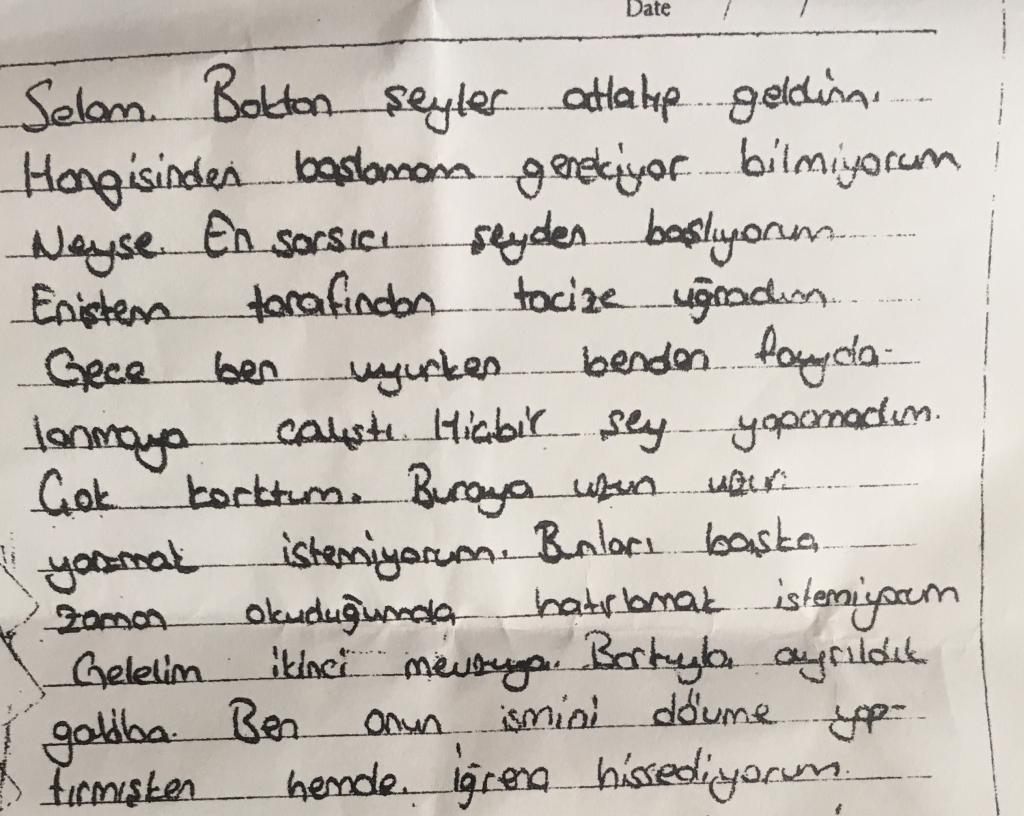 Date / /
Selam. Boktan şeyler atlatıp geldim.
Hangisinden başlamam gerekiyor bilmiyorum
Neyse. En sarsıcı şeyden başlıyorum
Eniştem tarafından tacize uğradım
Gece ben uyurken benden fayda-
lanmaya çalıştı. Hiçbir şey yapamadım.
Çok korktum. Buraya uzun uzun
yazmak istemiyorum. Bunları başka
zaman okuduğumda hatırlamak istemiyorum
Gelelim ikinci mevzuya. Berkayla ayrıldık
galiba. Ben onun ismini dövme yap-
tırmışken hemde. iğrenç hissediyorum.